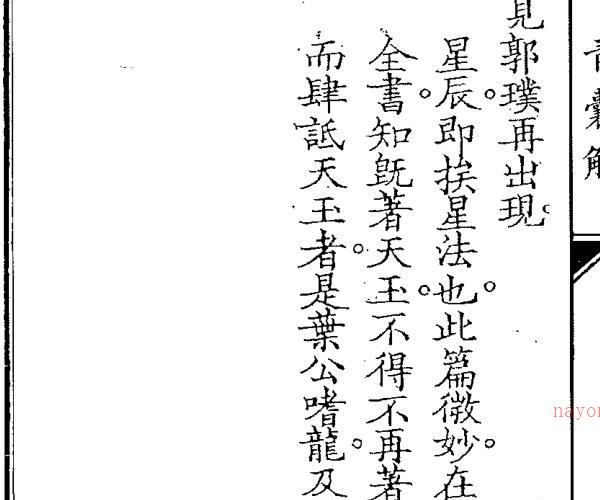 囊解
見郭璞再出現。
星辰。即挨星法。也此篇微妙。在
全書。知旣著天玉。不得不再著
而肆詆天玉者。是葉公嗜龍。及
nayon